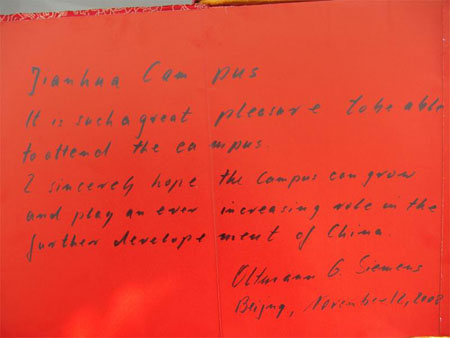 Jianhua Campus
It is such a great pleasure to be able
to attend the campus.
I sincerely hope the Campus can grow
and play an ever increasing role in the
further developement of China.
Oltmann G. Siemens
Beijing, November 2008